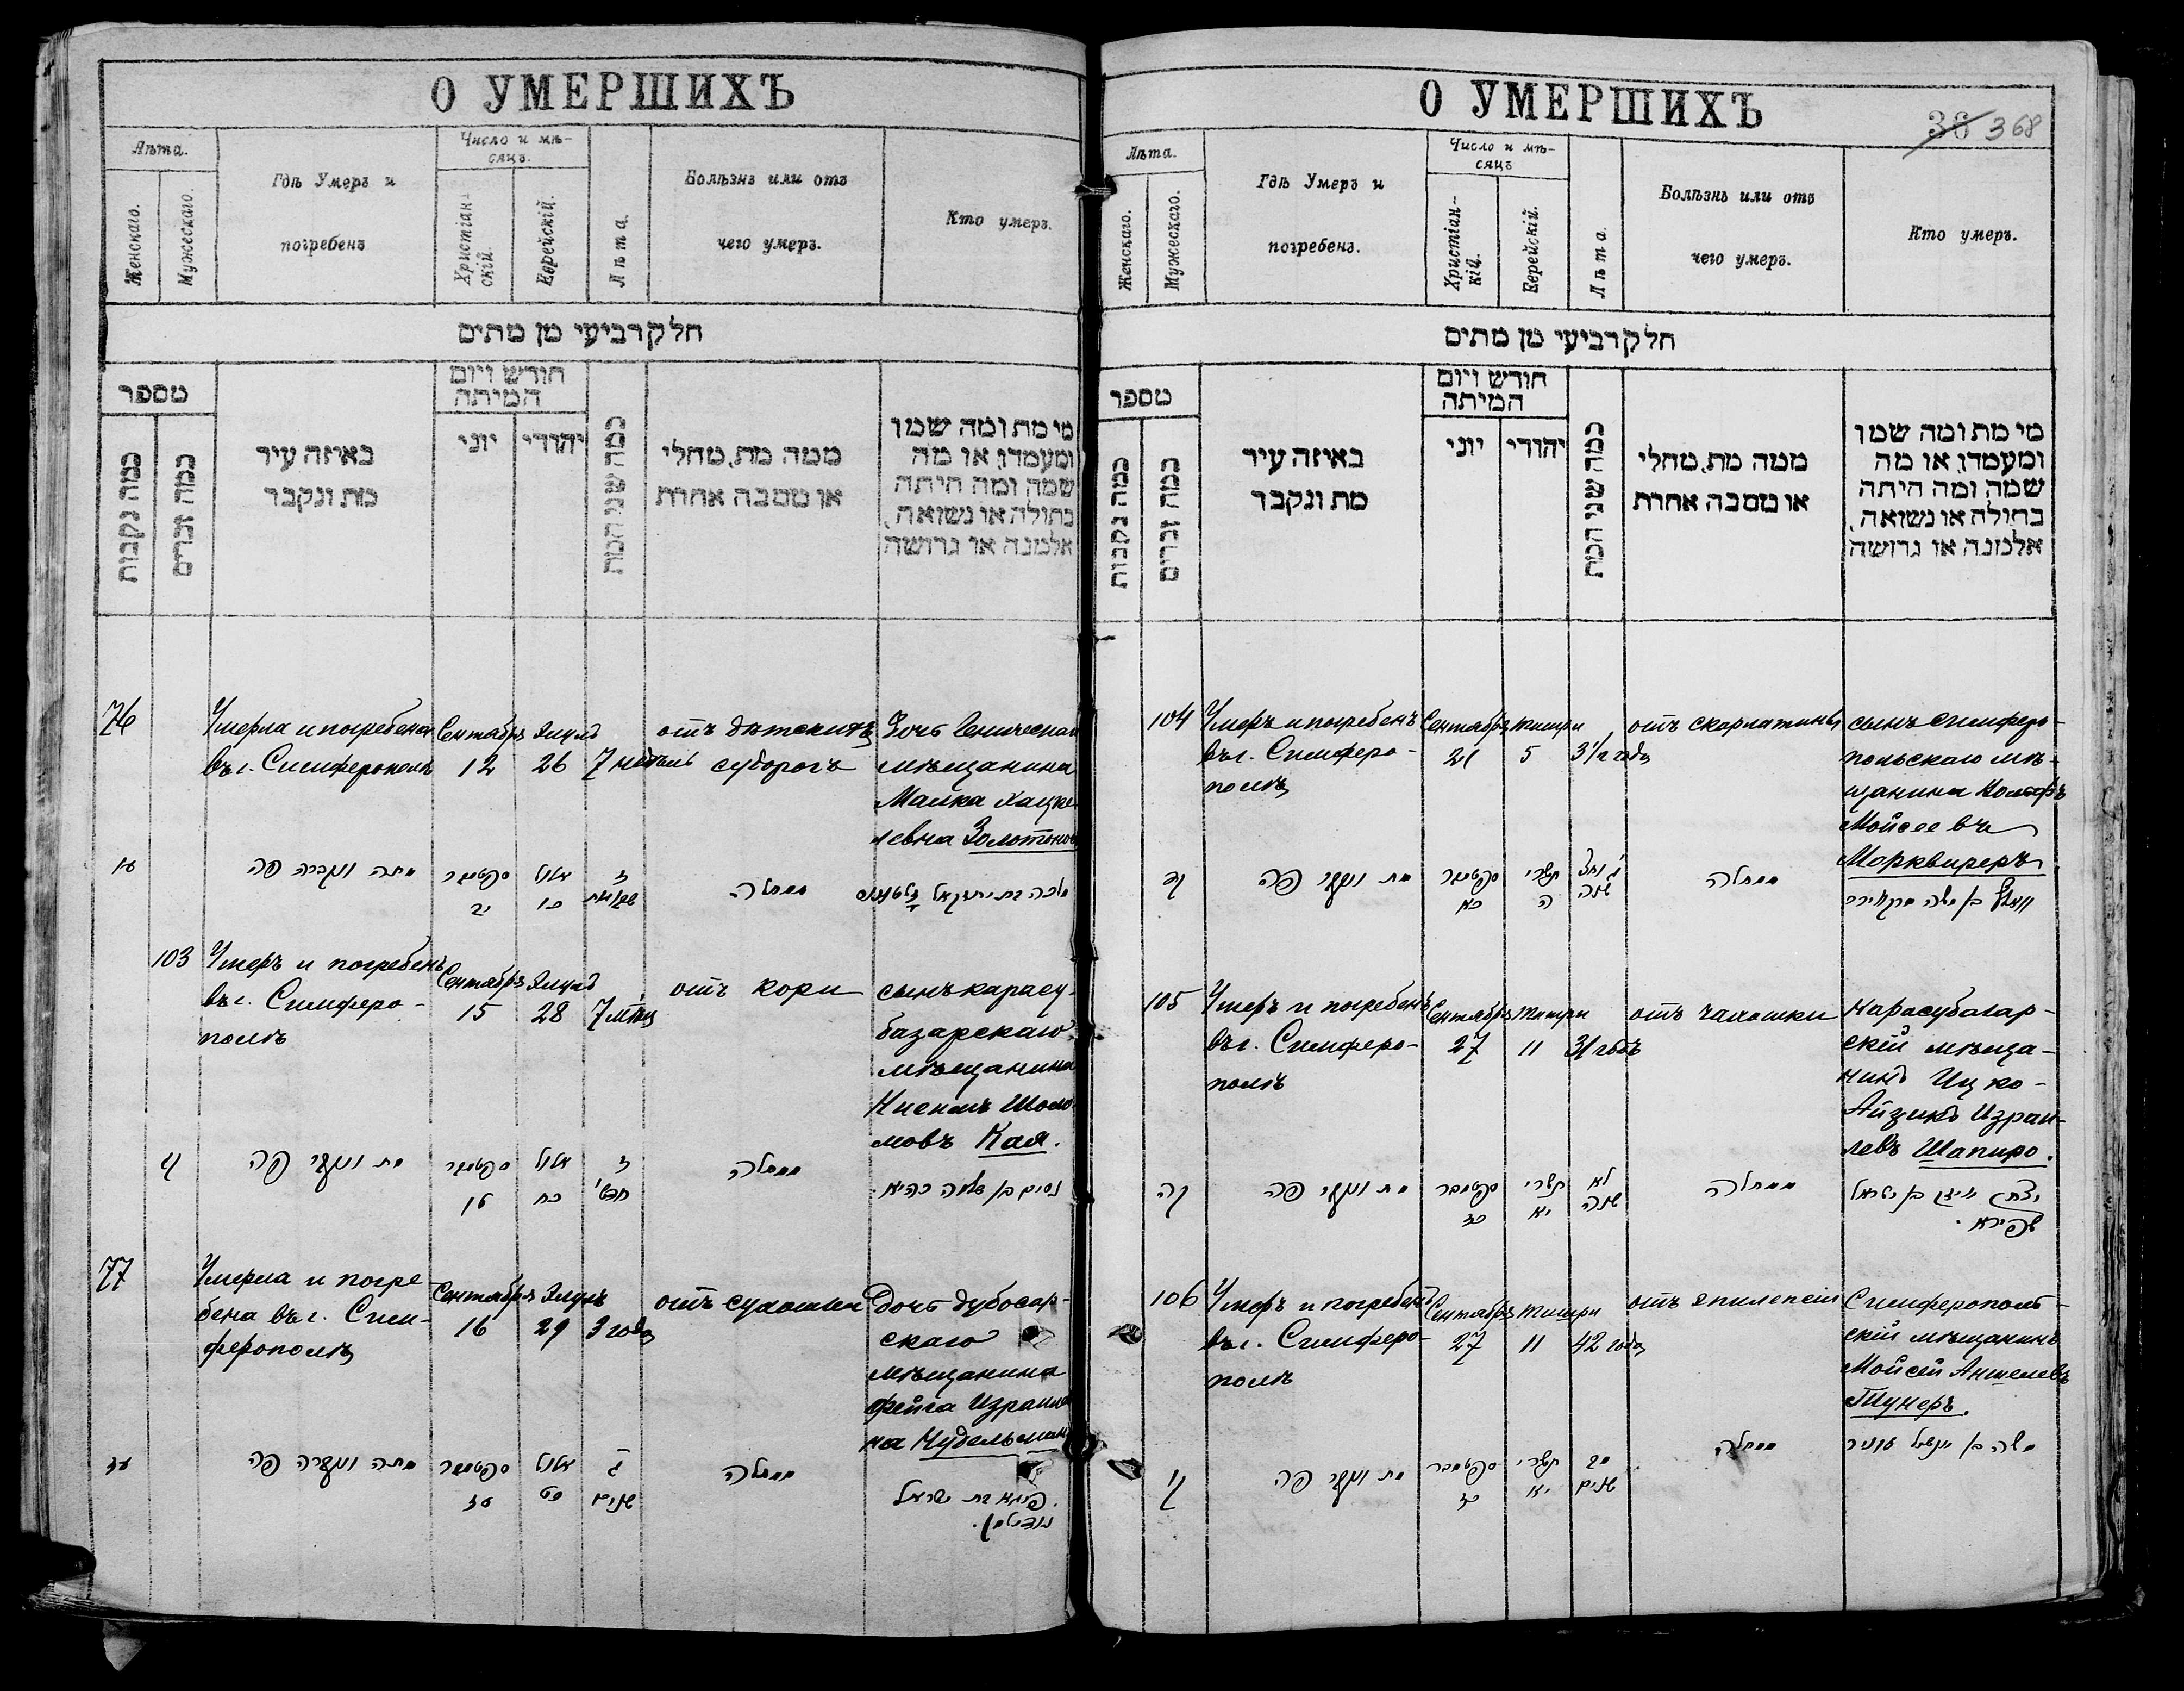 О УМЕРШИХЪ
Лѣта.
Женскаго.
Мужескаго.
Гдѣ Умеръ и
погребенъ
Число и мѣ-
сяцъ.
Христіан-
скій.
Еврейскій.
Лѣта.
Болѣзнь или отъ
чего умеръ.
Кто умеръ.
חלק רביעי מן מתים
מספר
כמה נקבות
כמה זכרים
באיזה עיר
מת ונקבר
חודש ויום
המיתה
יוני
יהודי
כמה שני המת
ממה מת, מחלי
או מסבה אחרת
מי מת ומה שמו
ומעמדו, או מה
שמה ומה היתה
בתולה או נשואה,
אלמנה או גרושה
76
Умерла и погребена
въ г. Симферополѣ
Сентябрь
12
Элулъ
26
7 недѣль
отъ дѣтскихъ
судорогъ
Дочь Геническаго
мѣщанина
Малка Хацке-
левна Золотонос
עו
מתה ונקברה פה
סקטעבר
יב
אלול
כו
ז
שבועות
ממחלה
מלכה בת יחזקאל
103
Умеръ и погребенъ
въ г. Симферо-
полѣ
Сентябрь
15
Элулъ
28
7 мѣц
отъ кори
сынъ карасу-
базарскаго
мѣщанина
Нисенъ Шоло-
мовъ Кая.
קג
מת ונקבר פה
אלול
כח
ז
חדשי
ממחלה
נסים בן שלמה
77
Умерла и погре-
бена въ г. Сим-
ферополѣ
Сентябрь
16
Элулъ
29
3 года
отъ сухотки
Дочь дубосар-
скаго
мѣщанина
Фейга Израиле
на Нудельман
עז
מתה ונקברה פה
אלול
כט
ג
שנים
ממחלה
פייגא בת ישראל
נודילמן.
О УМЕРШИХЪ
36 368
Лѣта.
Женскаго.
Мужескаго.
Гдѣ Умеръ и
погребенъ.
Число и мѣ-
сяцъ
Христіан-
кій.
Еврейскій.
Лѣта.
Болѣзнь или отъ
чего умеръ.
Кто умеръ.
חלק רביעי מן מתים
מספר
כמה נקבות
כמה זכרים
באיזה עיר
מת ונקבר
חודש ויום
המיתה
יוני
יהודי
כמה שני המת
ממה מת, מחלי
או מסבה אחרת
מי מת ומה שמו
ומעמדו, או מה
שמה ומה היתה
בתולה או נשואה,
אלמנה או גרושה
104
Умеръ и погребенъ
въ г. Симферо-
полѣ
Сентябрь
21
Тишри
5
3 1/2 года
отъ скарлатины
сынъ симферо-
польскаго мѣ-
щанина Вольфъ
Мойсеевъ
Марквиреръ
קד
מת ונקבר פה
כא
תשרי
ה
ג וחצי
שנה
ממחלה
וואלף בן משה
105
Умеръ и погребенъ
въ г. Симферо-
полѣ
Сентябрь
27
Тишри
11
31 годъ
отъ чахотки
Карасубазар-
скій мѣща-
нинъ Ицко-
Айзикъ Израи-
левъ Шапиро.
קה
מת ונקבר פה
כז
תשרי
יא
לא
שנה
ממחלה
יצחק אייזק בן ישראל
שפירא.
106
Умеръ и погребенъ
въ г. Симферо-
полѣ
Сентябрь
27
Тишри
11
42 года
отъ эпилепсіи
Симферополь-
скій мѣщанинъ
Мойсей Аншелевъ
Тунеръ.
קו
מת ונקבר פה
כז
תשרי
יא
מב
שנים
ממחלה
משה בן אנשיל טוניר